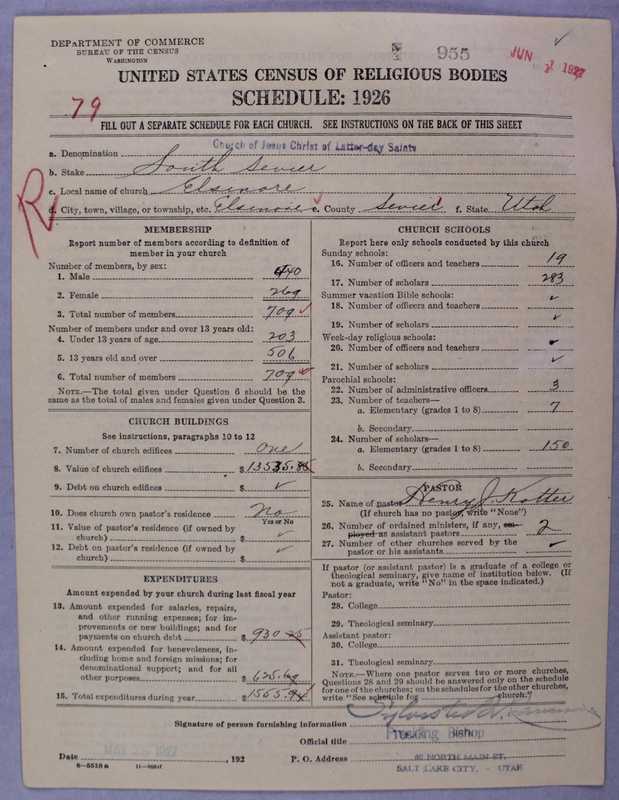 DEPARTMENT OF COMMERCE
BUREAU OF THE CENSUS
WASHINGTON
955
JUN 2 1927
UNITED STATES CENSUS OF RELIGIOUS BODIES
SCHEDULE: 1926
79
FILL OUT A SEPARATE SCHEDULE FOR EACH CHURCH. SEE INSTRUCTIONS ON THE BACK OF THIS SHEET
a. Denomination Church of Jesus Christ of Latter-day Saints
b. Stake South Sevier
c. Local name of church Elsinore
d. City, town, village, or township, etc. Elsinore e. County Sevier f. State Utah
R
MEMBERSHIP
Report number of members according to definition of
member in your church
Number of members, by sex:
1. Male 440
2. Female 269
3. Total number of members 709
Number of members under and over 13 years old:
4. Under 13 years of age 203
5. 13 years old and over 506
6. Total number of members 709
NOTE.—The total given under Question 6 should be the
same as the total of males and females given under Question 3.
CHURCH BUILDINGS
See instructions, paragraphs 10 to 12
7. Number of church edifices one
8. Value of church edifices $13535.85
9. Debt on church edifices $ ✓
10. Does church own pastor's residence No
Yes or No
11. Value of pastor's residence (if owned by
church) $ ✓
12. Debt on pastor's residence (if owned by
church) $ ✓
EXPENDITURES
Amount expended by your church during last fiscal year
13. Amount expended for salaries, repairs,
and other running expenses; for im-
provements or new buildings; and for
payments on church debt $ 930 25
14. Amount expended for benevolences, in-
cluding home and foreign missions; for
denominational support; and for all
other purposes $ 625.69
15. Total expenditures during year $1555.94
CHURCH SCHOOLS
Report here only schools conducted by this church
Sunday schools:
16. Number of officers and teachers 19
17. Number of scholars 283
Summer vacation Bible schools:
18. Number of officers and teachers ✓
19. Number of scholars ✓
Week-day religious schools:
20. Number of officers and teachers ✓
21. Number of scholars ✓
Parochial schools:
22. Number of administrative officers 3
23. Number of teachers—
a. Elementary (grades 1 to 8) 7
b. Secondary
24. Number of scholars—
a. Elementary (grades 1 to 8) 150
b. Secondary
PASTOR
25. Name of pastor Henry J. Kotter
(If church has no pastor, write "None")
26. Number of ordained ministers, if any, em-
ployed as assistant pastors 2
27. Number of other churches served by the
pastor or his assistants ✓
If pastor (or assistant pastor) is a graduate of a college or
theological seminary, give name of institution below. (If
not a graduate, write "No" in the space indicated.)
Pastor:
28. College
29. Theological seminary
Assistant pastor:
30. College
31. Theological seminary
NOTE.—Where one pastor serves two or more churches,
Questions 28 and 29 should be answered only on the schedule
for one of the churches; on the schedules for the other churches,
write "See schedule for church."
Signature of person furnishing information Sylvester Q.
Official title Presiding Bishop
Date MAY 25 1927, 192 P. O. Address 40 NORTH MAIN ST.
SALT LAKE CITY, - UTAH
8-5518a 11-9564f